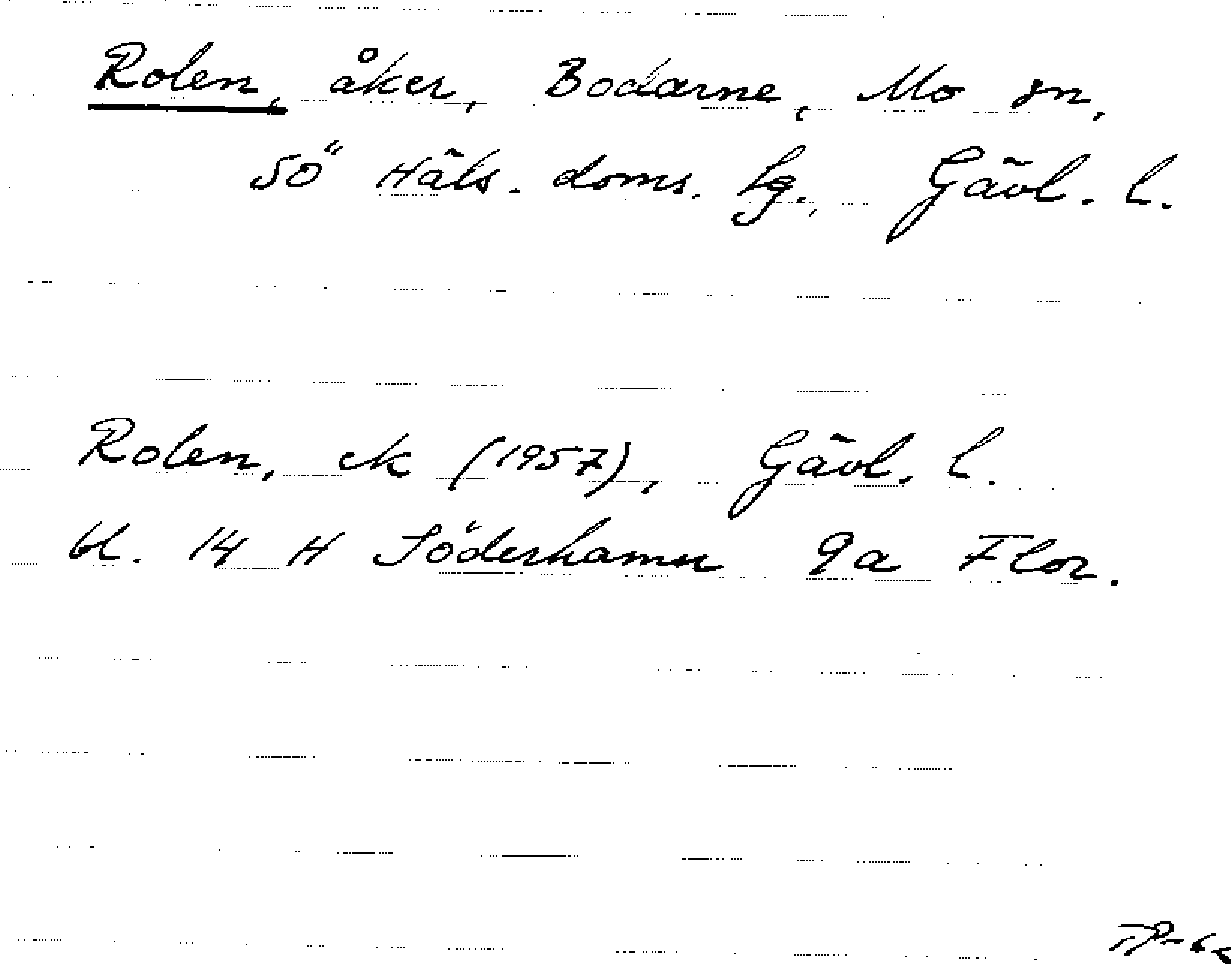 Rolen, åker, Bodarne, Mo sn,
Sö Häls. doms. sg., Gävl. l.
Rolen, ek (1957), Gävl. l.
bl. 14 H Söderhamn 9a Flor.